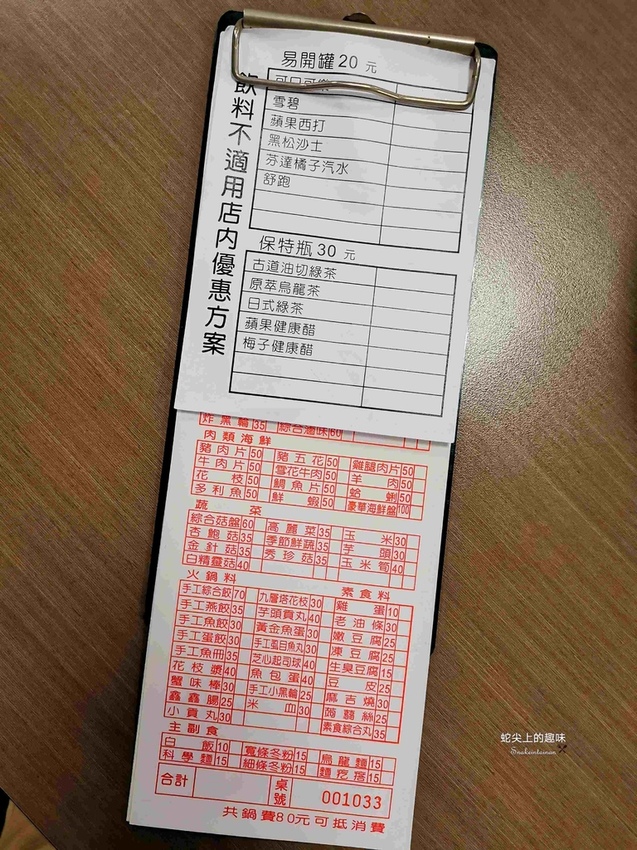 飲料不適用店內優惠方案
易開罐20 元
可口可樂
雪碧
蘋果西打
黑松沙士
芬達橘子汽水
舒跑
保特瓶30 元
古道油切綠茶
原萃烏龍茶
日式綠茶
蘋果健康醋
梅子健康醋
炸黑輪35 綜合滷味60
肉類海鮮
豬肉片50 豬五花50 雞腿肉片50
牛肉片50 雪花牛肉50 羊肉50
花枝50 鯛魚片50 蛤蜊50
多利魚50 鮮蝦50 豪華海鮮盤100
蔬菜
綜合菇盤60 高麗菜35 玉米30
杏鮑菇35 季節鮮蔬35 芋頭30
金針菇35 秀珍菇35 玉米筍40
白精靈菇40
火鍋料 素食料
手工綜合餃70 九層塔花枝30 雞蛋10
手工燕餃35 芋頭貢丸40 老油條30
手工魚餃30 黃金魚蛋30 嫩豆腐25
手工蛋餃30 手工虱目魚丸30 凍豆腐25
手工魚冊35 芝心起司球40 生臭豆腐15
花枝漿40 魚包蛋40 豆皮25
蟹味棒30 手工小黑輪25 麻吉燒30
鑫鑫腸25 米血30 蒟蒻絲25
小貢丸30 素食綜合丸35
主副食
白飯10 寬條冬粉15 烏龍麵15
科學麵15 細條冬粉15 麵疙瘩15
合計 桌號 001033
共鍋費80元可抵消費
蛇尖上的趣味